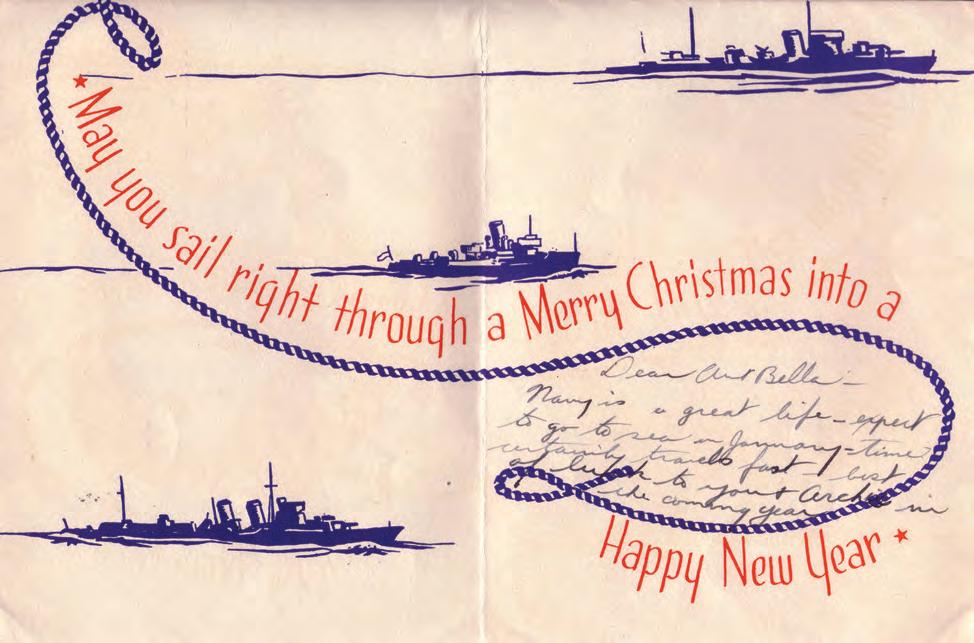 ★ May you sail right through a Merry Christmas into a
Dear Aunt Bella –
Navy is a great life – expect
to go to sea in January – time
certainly travels fast – best
of luck to you & Archie in
the coming year
Happy New Year ★